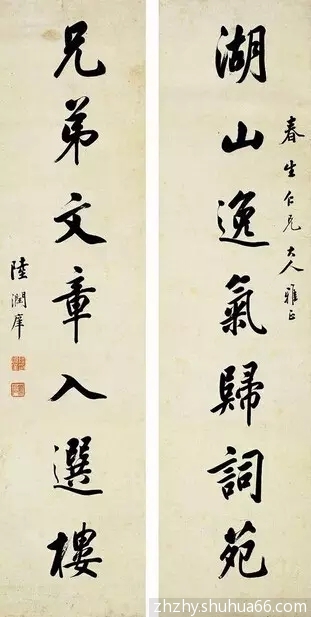 春生仁兄大人雅正
湖山逸氣歸詞苑
兄弟文章入選樓
陸潤庠
zhzhy.shuhua66.com